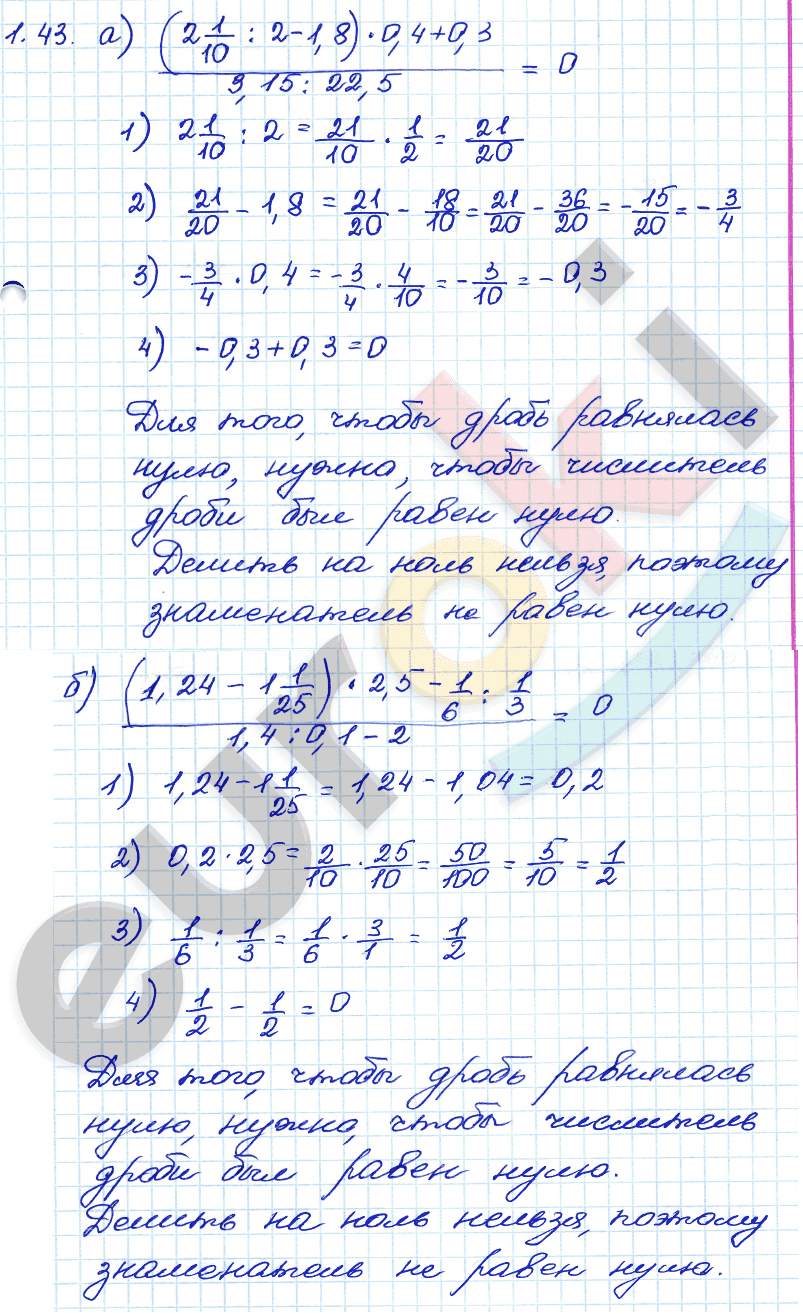 1.43. а) (2 1/10 : 2 - 1,8) · 0,4 + 0,3 / 3,15 : 22,5 = 0
1) 2 1/10 : 2 = 21/10 · 1/2 = 21/20
2) 21/20 - 1,8 = 21/20 - 18/10 = 21/20 - 36/20 = - 15/20 = - 3/4
3) - 3/4 · 0,4 = - 3/4 · 4/10 = - 3/10 = - 0,3
4) - 0,3 + 0,3 = 0
Для того, чтобы дробь равнялась
нулю, нужно, чтобы числитель
дроби был равен нулю.
Делить на ноль нельзя, поэтому
знаменатель не равен нулю.
б) (1,24 - 1 1/25) · 2,5 - 1/6 : 1/3 / 1,4 : 0,1 - 2 = 0
1) 1,24 - 1 1/25 = 1,24 - 1,04 = 0,2
2) 0,2 · 2,5 = 2/10 · 25/10 = 50/100 = 5/10 = 1/2
3) 1/6 : 1/3 = 1/6 · 3/1 = 1/2
4) 1/2 - 1/2 = 0
Для того, чтобы дробь равнялась
нулю, нужно, чтобы числитель
дроби был равен нулю.
Делить на ноль нельзя, поэтому
знаменатель не равен нулю.
euroki